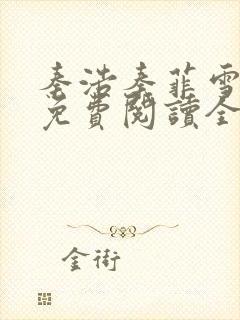 秦浩秦菲雪
免費閱讀全
金術